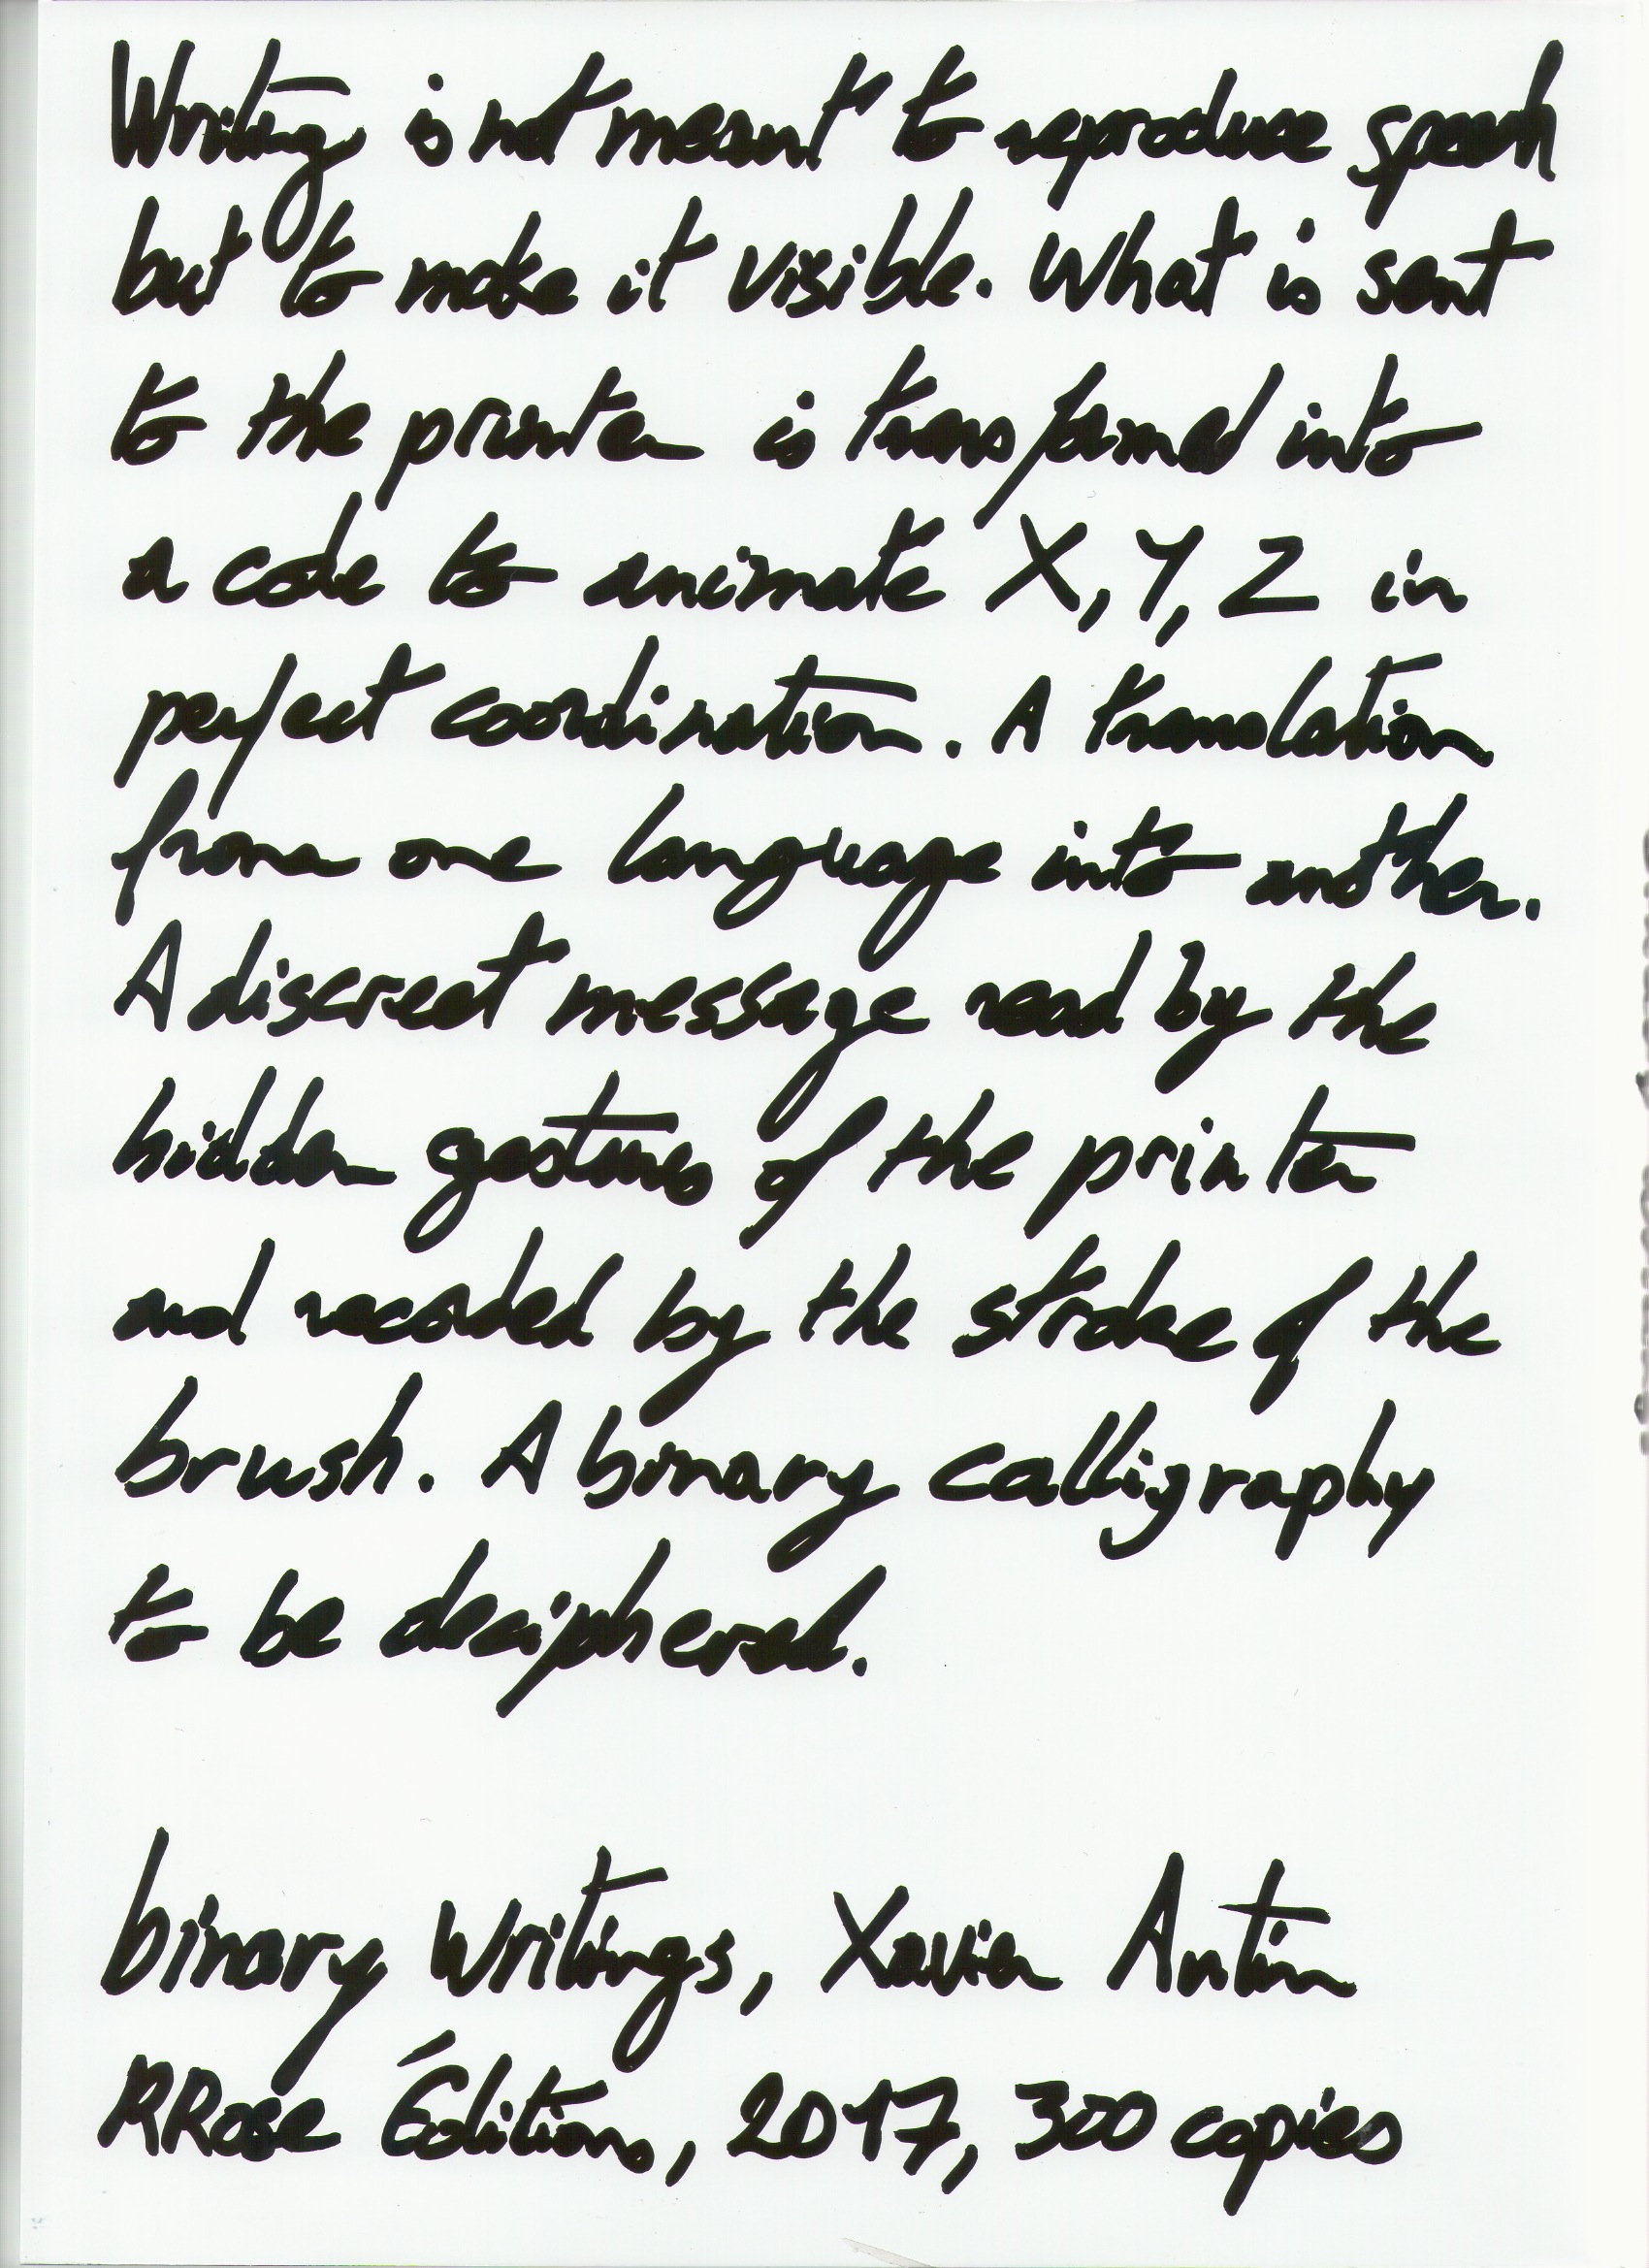 Writing is not meant to reproduce speech
but to make it visible. What is sent
to the printer is transformed into
a code to animate X, Y, Z in
perfect coordination. A translation
from one language into another.
A discreet message read by the
hidden gestures of the printer
and recorded by the stroke of the
brush. A binary calligraphy
to be deciphered.
binary Writings, Xavier Antin
RRose Éditions, 2017, 300 copies